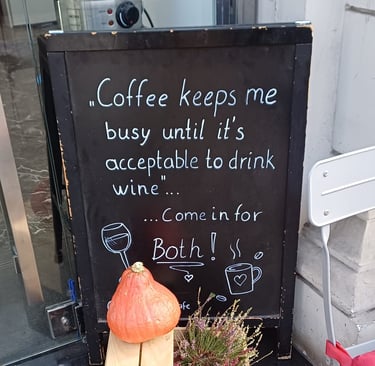 „Coffee keeps me
busy until it's
acceptable to drink
wine"...
...Come in for
Both!